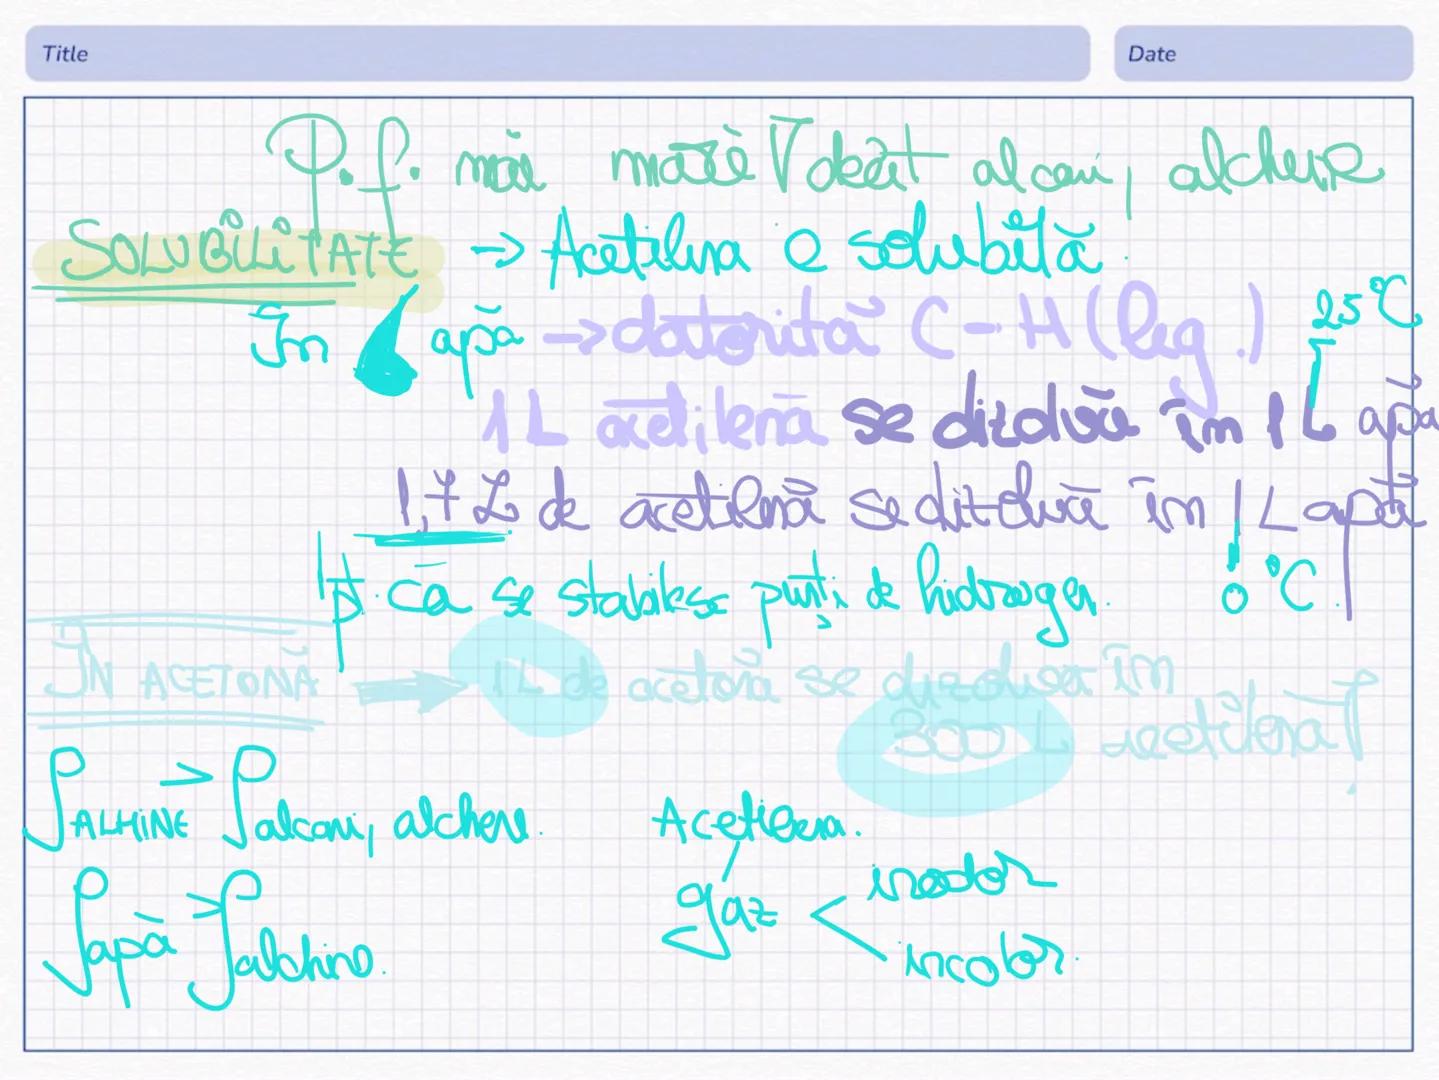 Title Date
P.f. mai mare decât alcani, alchene
SOLUBILITATE → Acetilena e solubilă
25°C
În apă → datorită C-H (leg.)
1L acetilenă se dizolvă în 1L apă
1,7 L de acetilenă se dizolvă în 1L apă
pt. că se stabilesc punți de hidrogen. 0°C
ÎN ACETONĂ → 1L de acetonă se dizolvă în
300 L acetilenă
ρ ALHINE > ρ alcani, alchene.
Acetilena.
gaz < inodor
incolor.
ρ apă > ρ alchine.